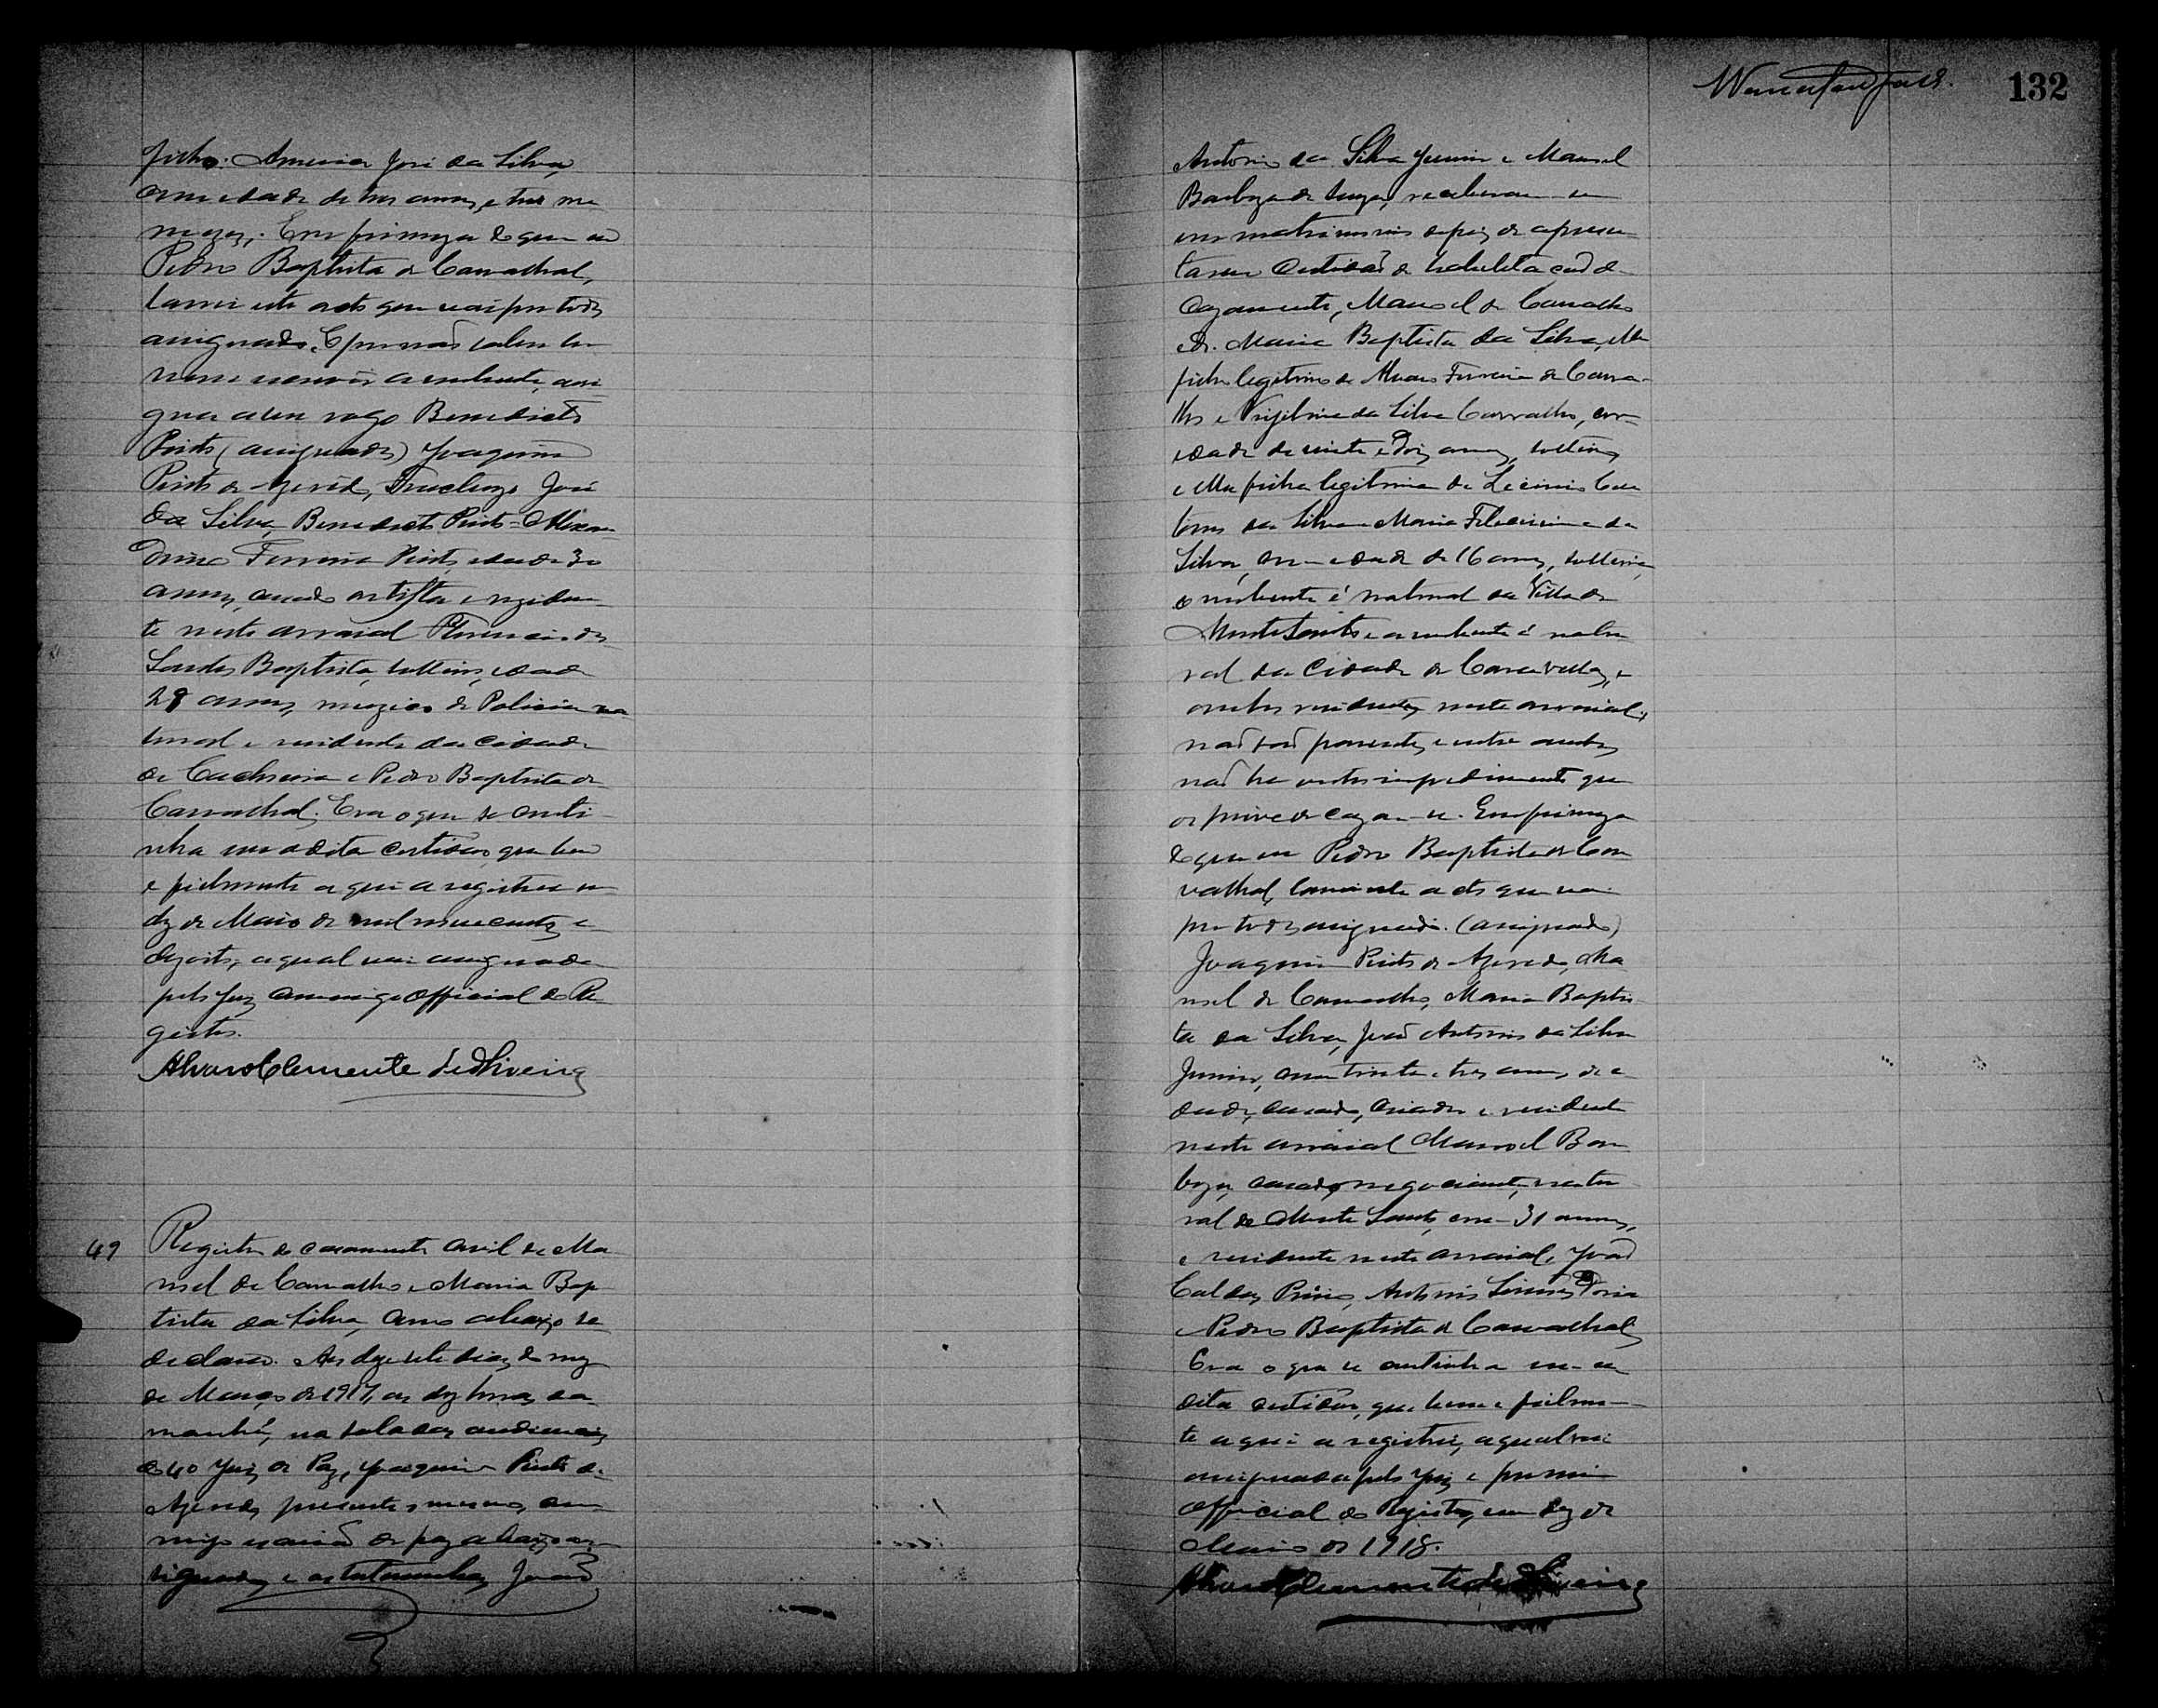 filho. America José da Silva,
com edade de tres annos, e tres me
mezes. Em firmeza do que eu
Pedro Baptista de Carvalhal,
lavrei este acto que vai por todos
assignado. E por não saber ler
nem escrever a nubente, assi
gna a seu rogo Benedicto
Pinto (assignados) Joaquim
Pinto de Azevêdo, José
da Silva, Benedicto Pinto = Alexan
drino Ferreira Pinto, edade 30
annos, casado artista e residen
te neste arraial Florencio dos
Santos Baptista, solteiro, edade
28 annos, muzico de Policia na
tural e residente da cidade
de Cachoeira e Pedro Baptista de
Carvalhal. Era o que se conti
nha em a dita certidão que bem
e fielmente aqui a registrei em
dez de Maio de mil novecentos e
dezoito, a qual vai assignada
pelo Juiz commigo official do Re
gistro.
Alvaro Clemente de Oliveira
49 Registro do casamento civil de Ma
noel de Carvalho e Maria Bap
tista da Silva, como abaixo se
declara. Aos dezesete dias do mez
de Março de 1917, as dez horas da
manhã, na sala das audiencias
do Juiz de Paz, Joaquim Pinto de
Azevedo, presente o mesmo, com
migo escrivão de paz abaixo as
signado, e as testemunhas João
132
Antonio da Silva Junior e Manoel
Barboza de Souza, receberam-se
em matrimonio depois de apresen
tarem certidão de habilitação de
cazamento, Manoel de Carvalho
e D. Maria Baptista da Silva, elle
filho legitimo de Alvaro Ferreira de Carva-
lho e da Silva Carvalho, com
edade de vinte e dois annos, solteiro,
e ella filha legitima de Licinio Cae
tano da Silva e Maria Feliciana da
Silva, com edade de 16 annos, solteira,
o nubente é natural da Villa de
Monte Santo e a nubente é natu
ral da cidade de Caravellas, e
ambos residentes neste arraial,
não são parentes, e entre ambos
não ha outro impedimento que
os prive de cazar-se. Em firmeza
do que eu Pedro Baptista de Car
valhal, lavrei este acto que vai
por todos assignado. (assignado)
Joaquim Pinto de Azevedo, Ma
noel de Carvalho, Maria Baptis
ta da Silva, João Antonio da Silva
Junior, com trinta e tres annos de e
dade, casado, criador e residente
neste arraial Manoel Bar
boza, casado, negociante, natu
ral de Monte Santo, com 31 annos,
e residente neste arraial, João
Caldas Primo, Antonio Simões Doria
e Pedro Baptista de Carvalhal,
Era o que se continha em a
dita certidão, que bem e fielmen
te aqui a registrei, a qual vai
assignada pelo Juiz e por mim
official do Registro, em dez de
Maio de 1918.
Alvaro Clemente de Oliveira